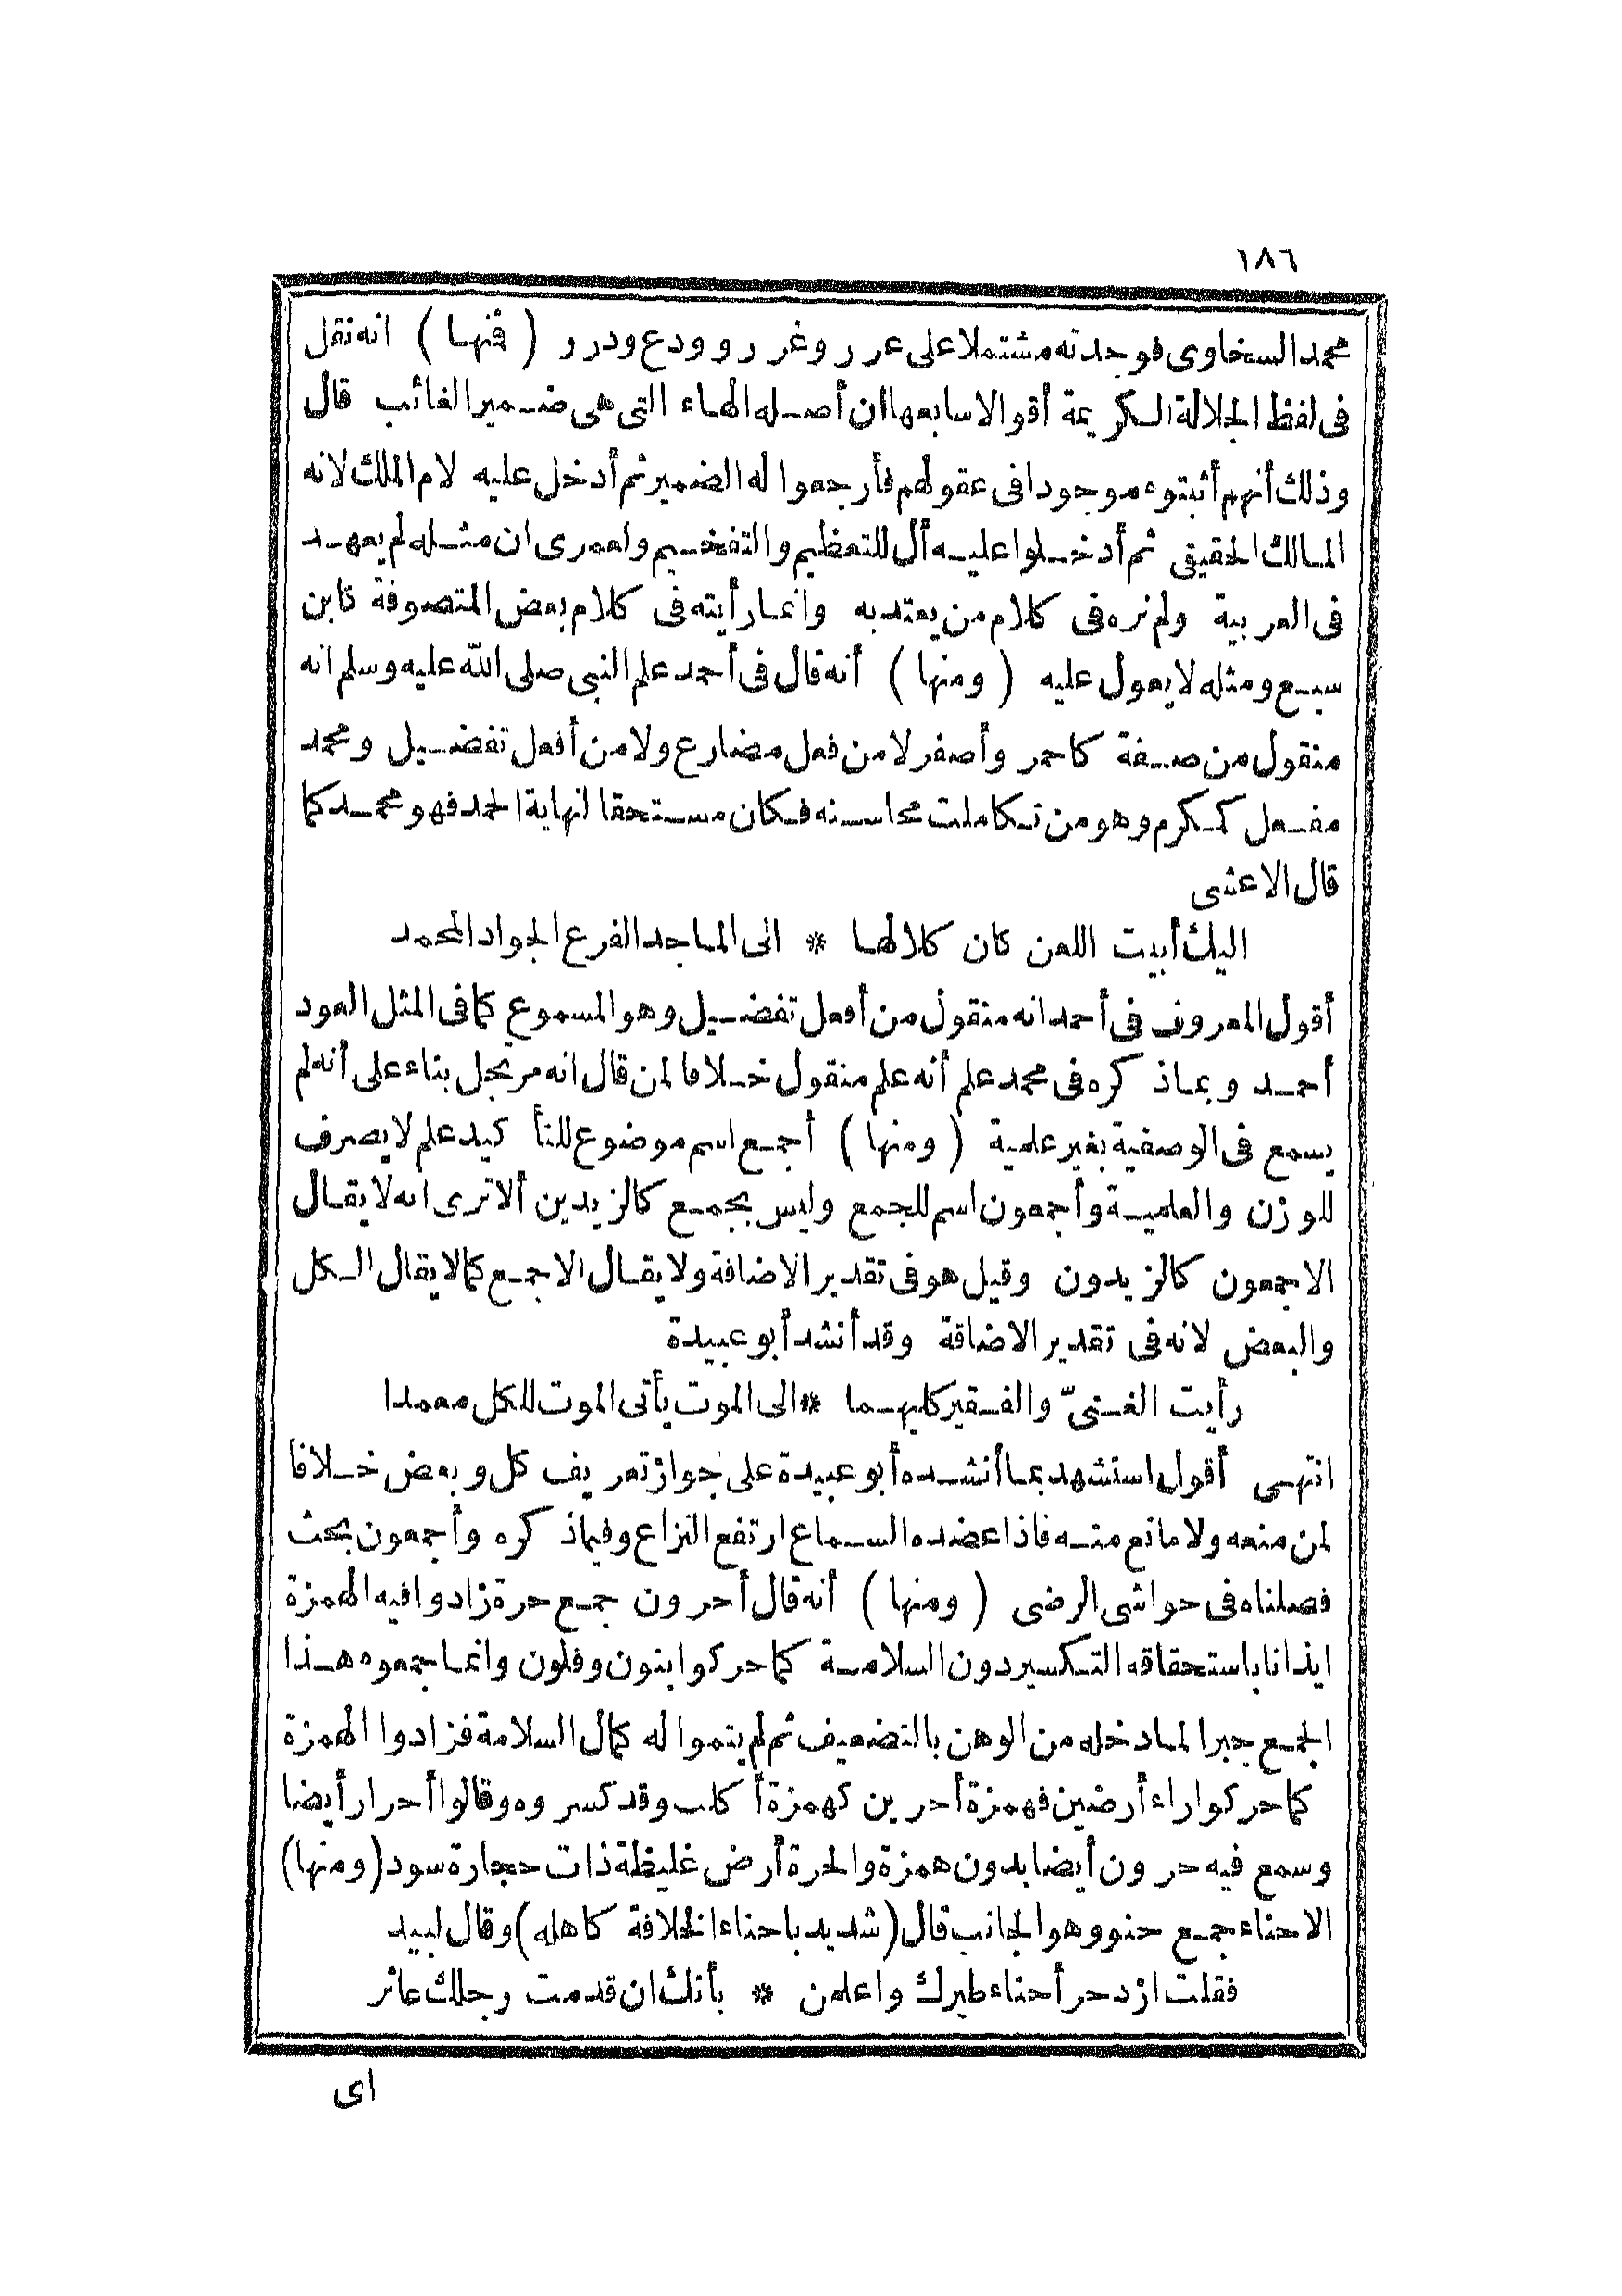 ١٨٦
محمد السخاوى فوجدته مشتملا على عرر وغرر وودع ودرر (فنها) انه نقل
فى لفظ الجلالة الكريمة أقوالا سابعها ان أصله الهاء التى هى ضمير الغائب قال
وذلك أنهم أثبتوه موجودا فى عقولهم فأرجعوا له الضمير ثم أدخل عليه لام الملك لانه
المالك الحقيقى ثم أدخلوا عليه أل للتعظيم والتفخيم ولعمرى ان مثله لم يعهد
فى العربية ولم نره فى كلام من يعتد به وانما رأيته فى كلام بعض المتصوفة كابن
سبع ومثله لا يعول عليه (ومنها) أنه قال فى أحمد علم النبى صلى الله عليه وسلم انه
منقول من صفة كاحمر وأصفر لا من فعل مضارع ولا من أفعل تفضيل ومحمد
مفعل كمكرم وهو من تكاملت محاسنه فكان مستحقا لنهاية الحمد فهو محمد كما
قال الاعشى
اليك أبيت اللعن كان كلالها * الى الماجد الفرع الجواد المحمد
أقول المعروف فى أحمد انه منقول من أفعل تفضيل وهو المسموع كما فى المثل العود
أحمد وبماذكره فى محمد علم أنه علم منقول خلافا لمن قال انه مرتجل بناء على أنه لم
يسمع فى الوصفية بغير علمية (ومنها) أجمع اسم موضوع للتأكيد علم لا يصرف
للوزن والعلمية وأجمعون اسم للجمع وليس بجمع كالزيدين ألا ترى انه لا يقال
الاجمعون كالزيدون وقيل هو فى تقدير الاضافة ولا يقال الاجمع كما لا يقال الكل
والبعض لانه فى تقدير الاضافة وقد أنشد أبو عبيدة
رأيت الغنىّ والفقير كليهما * الى الموت يأتى الموت للكل معمدا
انتهى أقول استشهد بما أنشده أبو عبيدة على جواز تعريف كل وبعض خلافا
لمن منعه ولا مانع منه فاذا عضده السماع ارتفع النزاع وفيماذكره وأجمعون بحث
فصلناه فى حواشى الرضى (ومنها) أنه قال أحرون جمع حرة زادوا فيه الهمزة
ايذانا باستحقاقه التكسير دون السلامة كما حركوا بنون وفلون وانما جمعوه هذا
الجمع جبرا لما دخله من الوهن بالتضعيف ثم لم يتموا له كمال السلامة فزادوا الهمزة
كما حركوا راء أرضين فهمزة أحرين كهمزة أكلب وقد كسروه وقالوا أحرار أيضا
وسمع فيه حرون أيضا بدون همزة والحرة أرض غليظة ذات حجارة سود (ومنها)
الاحناء جمع حنو وهو الجانب قال (شديد باحناء الخلافة كاهله) وقال لبيد
فقلت ازدحر أحناء طيرك واعلمن * بأنك ان قدمت رجلك عاثر
اى